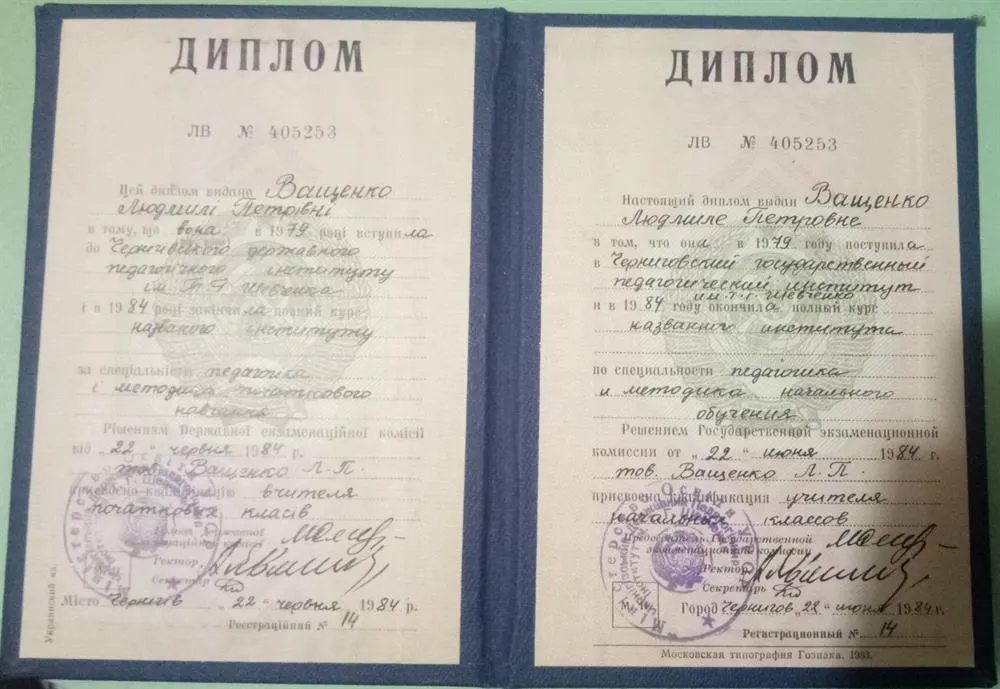 ДИПЛОМ
ЛВ № 405253
Цей диплом видано Ващенко
Людмилі Петрівні
в тому, що вона в 1979 році вступила
до Чернігівського державного
педагогічного інституту
ім. Т Г Шевченка
і в 1984 році закінчила повний курс
названого інституту
за спеціальністю педагогіка
і методика початкового
навчання
Рішенням Державної екзаменаційної комісії
від „22" червня 1984 р.
тов. Ващенко Л.П.
присвоєно кваліфікацію вчителя
початкових класів
Голова Державної
екзаменаційної комісії
Ректор
Секретар
Місто Чернігів „22" червня 1984 р.
Реєстраційний № 14
Украинский яз.
ДИПЛОМ
ЛВ № 405253
Настоящий диплом выдан Ващенко
Людмиле Петровне
в том, что она в 1979 году поступила
в Черниговский государственный
педагогический институт
им. Т. Г. Шевченко
и в 1984 году окончила полный курс
названного института
по специальности педагогика
и методика начального
обучения
Решением Государственной экзаменационной
комиссии от „22" июня 1984 г.
тов. Ващенко Л.П.
присвоена квалификация учителя
начальных классов
Председатель Государственной
экзаменационной комиссии
Ректор
Секретарь
М. П. Город Чернигов „22" июня 1984 г.
Регистрационный № 14
Московская типография Гознака. 1983.